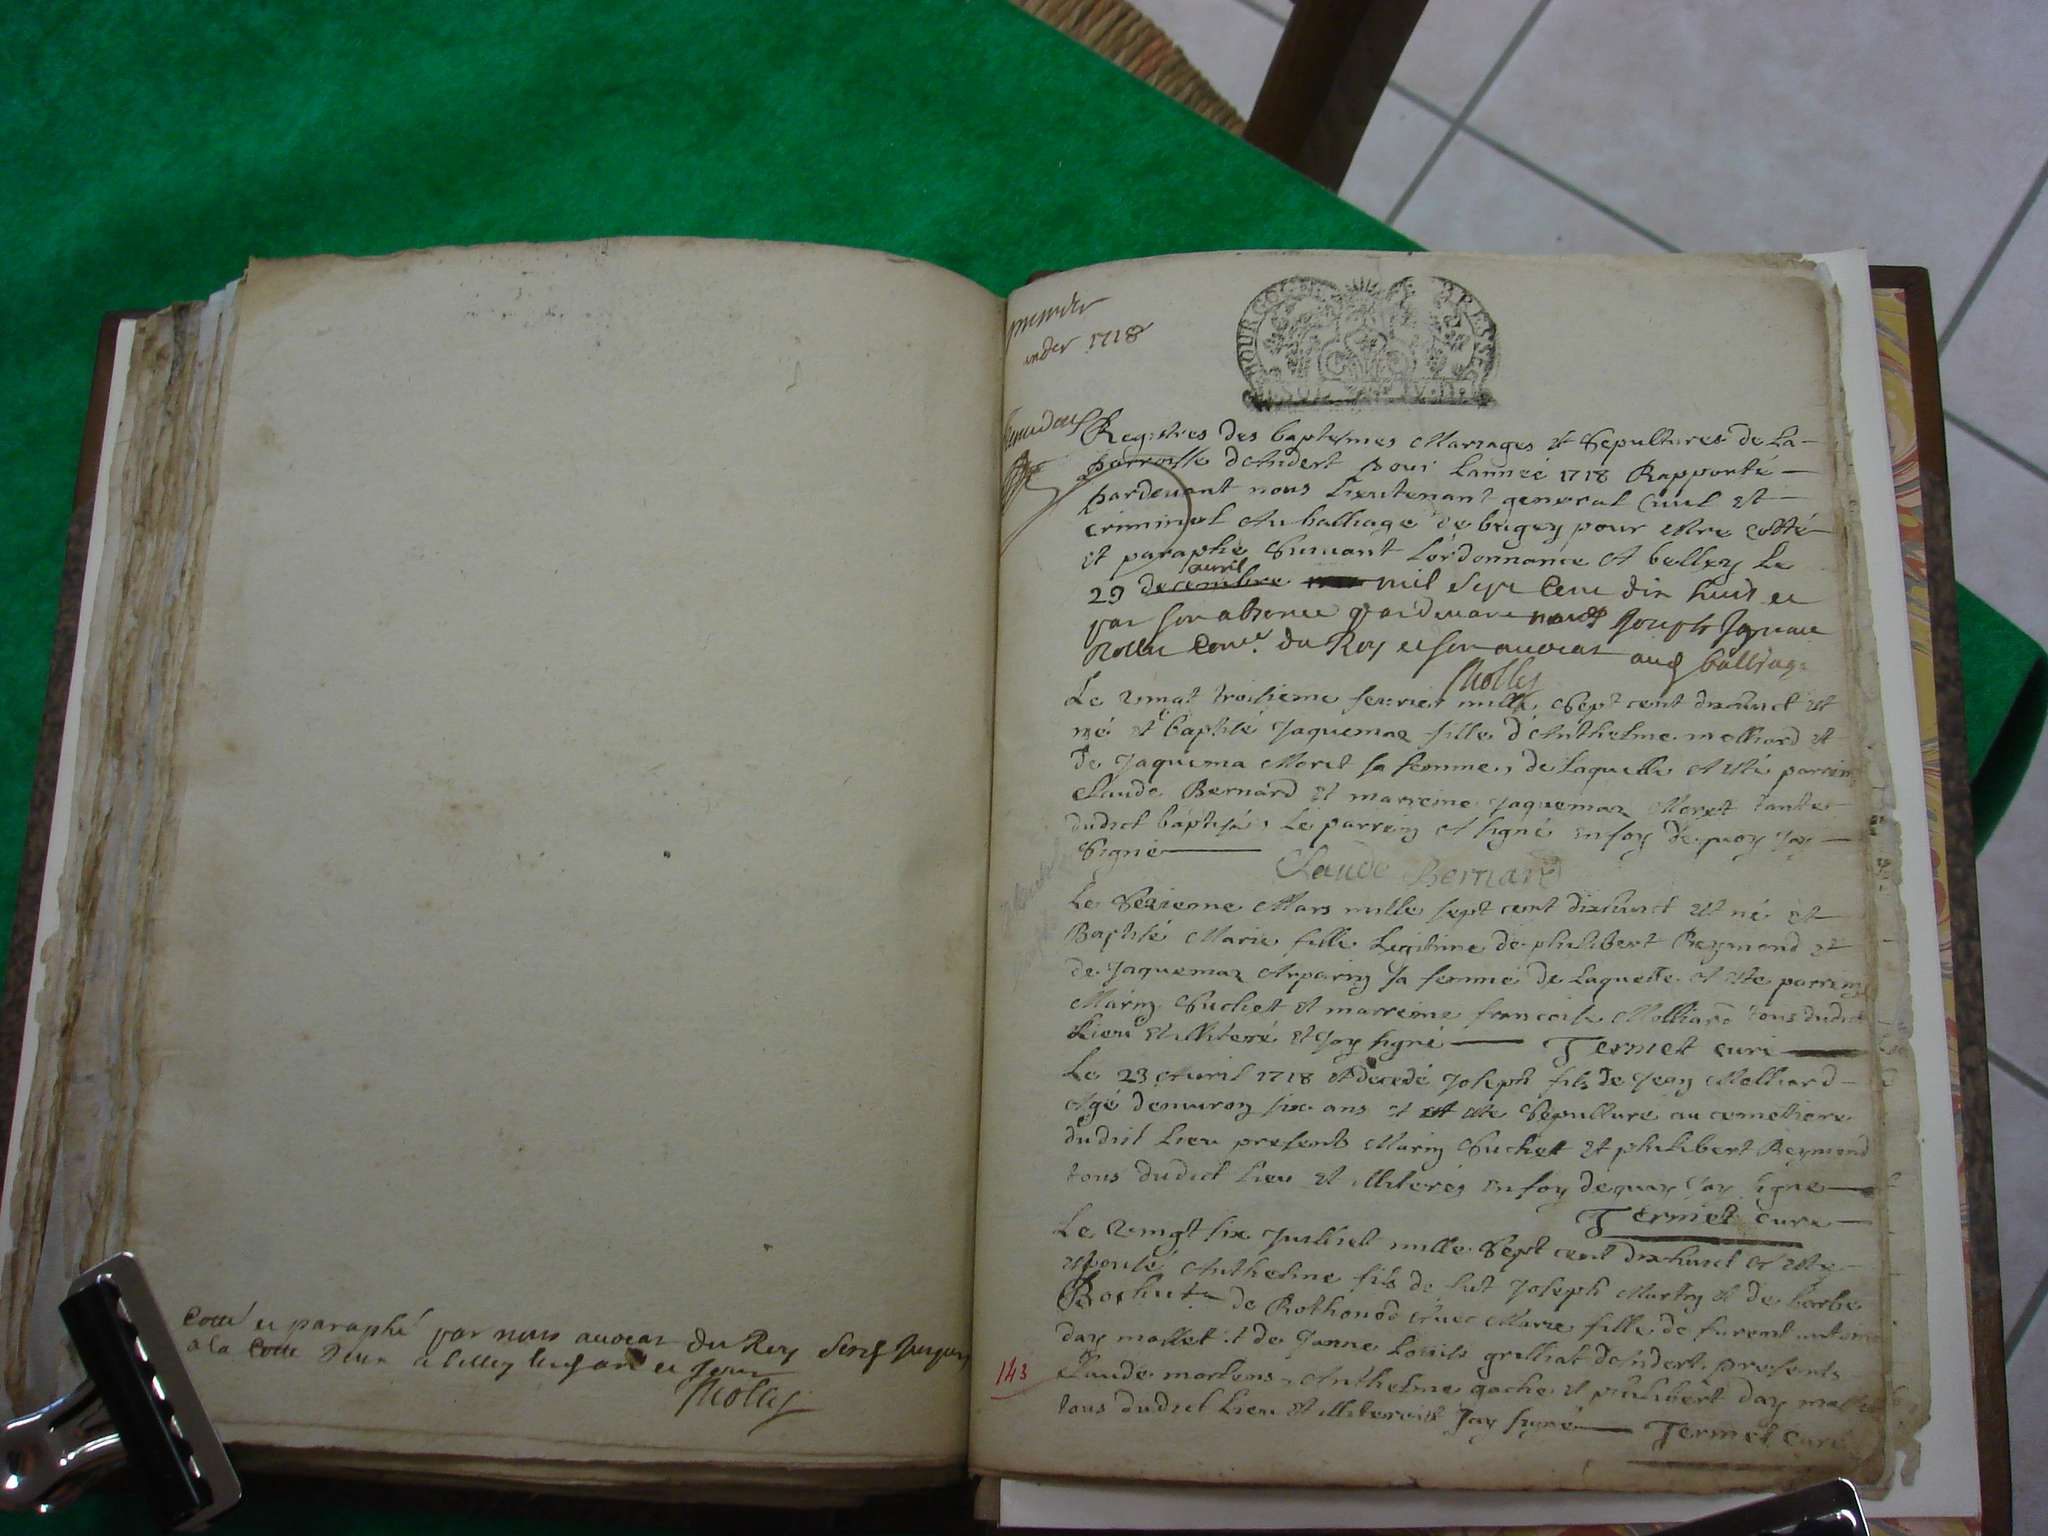 Cotté et paraphé par nous avocat du Roy
a la Cotte
Nolly
premier
Ander 1718
Registres des baptesmes Mariages et Sepultures de La
parroisse dAndert pour Lanneé 1718 Rapporté
pardevant nous Lieutenant general Civil et
criminel Au balliage de bugey pour estre cotté
et paraphe Suivant Lordonnance A belley Le
avril
29 decembre mil sept Cent dix huit et
par son absence pardevant nous Joseph Ignace
Du Roy et son avocat aud balliage
Nolly
Le vingt troisieme fevrier mille Sept cent dixhuict est
né et baptisé Jaquemaz fille dAnthelme molliard et
de Jaquema Moret sa femme, de Laquelle A esté parrein
Claude Bernard et marreine Jaquemaz Moret tante
dudict baptisé, Le parrein A signé en foy de quoy Jay
Signé
Claude Bernard
Le Sezieme Mars mille sept cent dixhuict est né et
Baptisé Marie fille Legitime de philibert Reymond et
de Jaquemaz Arparin sa femme de Laquelle A esté parrein
Marin Suchet et marreine francoise Molliard tous dudict
Lieu et illiteré et Jay signé Termet curé
Le 23 Avril 1718 est decedé Joseph fils de Jean Molliard
Agé denviron six ans et est esté Sepulturé au cemetiere
dudit Lieu presents Marin Suchet et philibert Reymond
tous dudict Lieu et illiterés en foy dequoy Jay signe
Termet curé
Le vingt six Juilliet mille Sept cent dixhuict A esté
espousé Anthelme fils de fut Joseph Martin et de barbe
Rochut de Rothonod Avec Marie fille de furent antoine
day mollet et de Janne Louise grilliat dAndert presents
Claude martens, Anthelme gache et philibert day mollet
143
tous dudict Lieu et illiterés Jay signé Termet curé